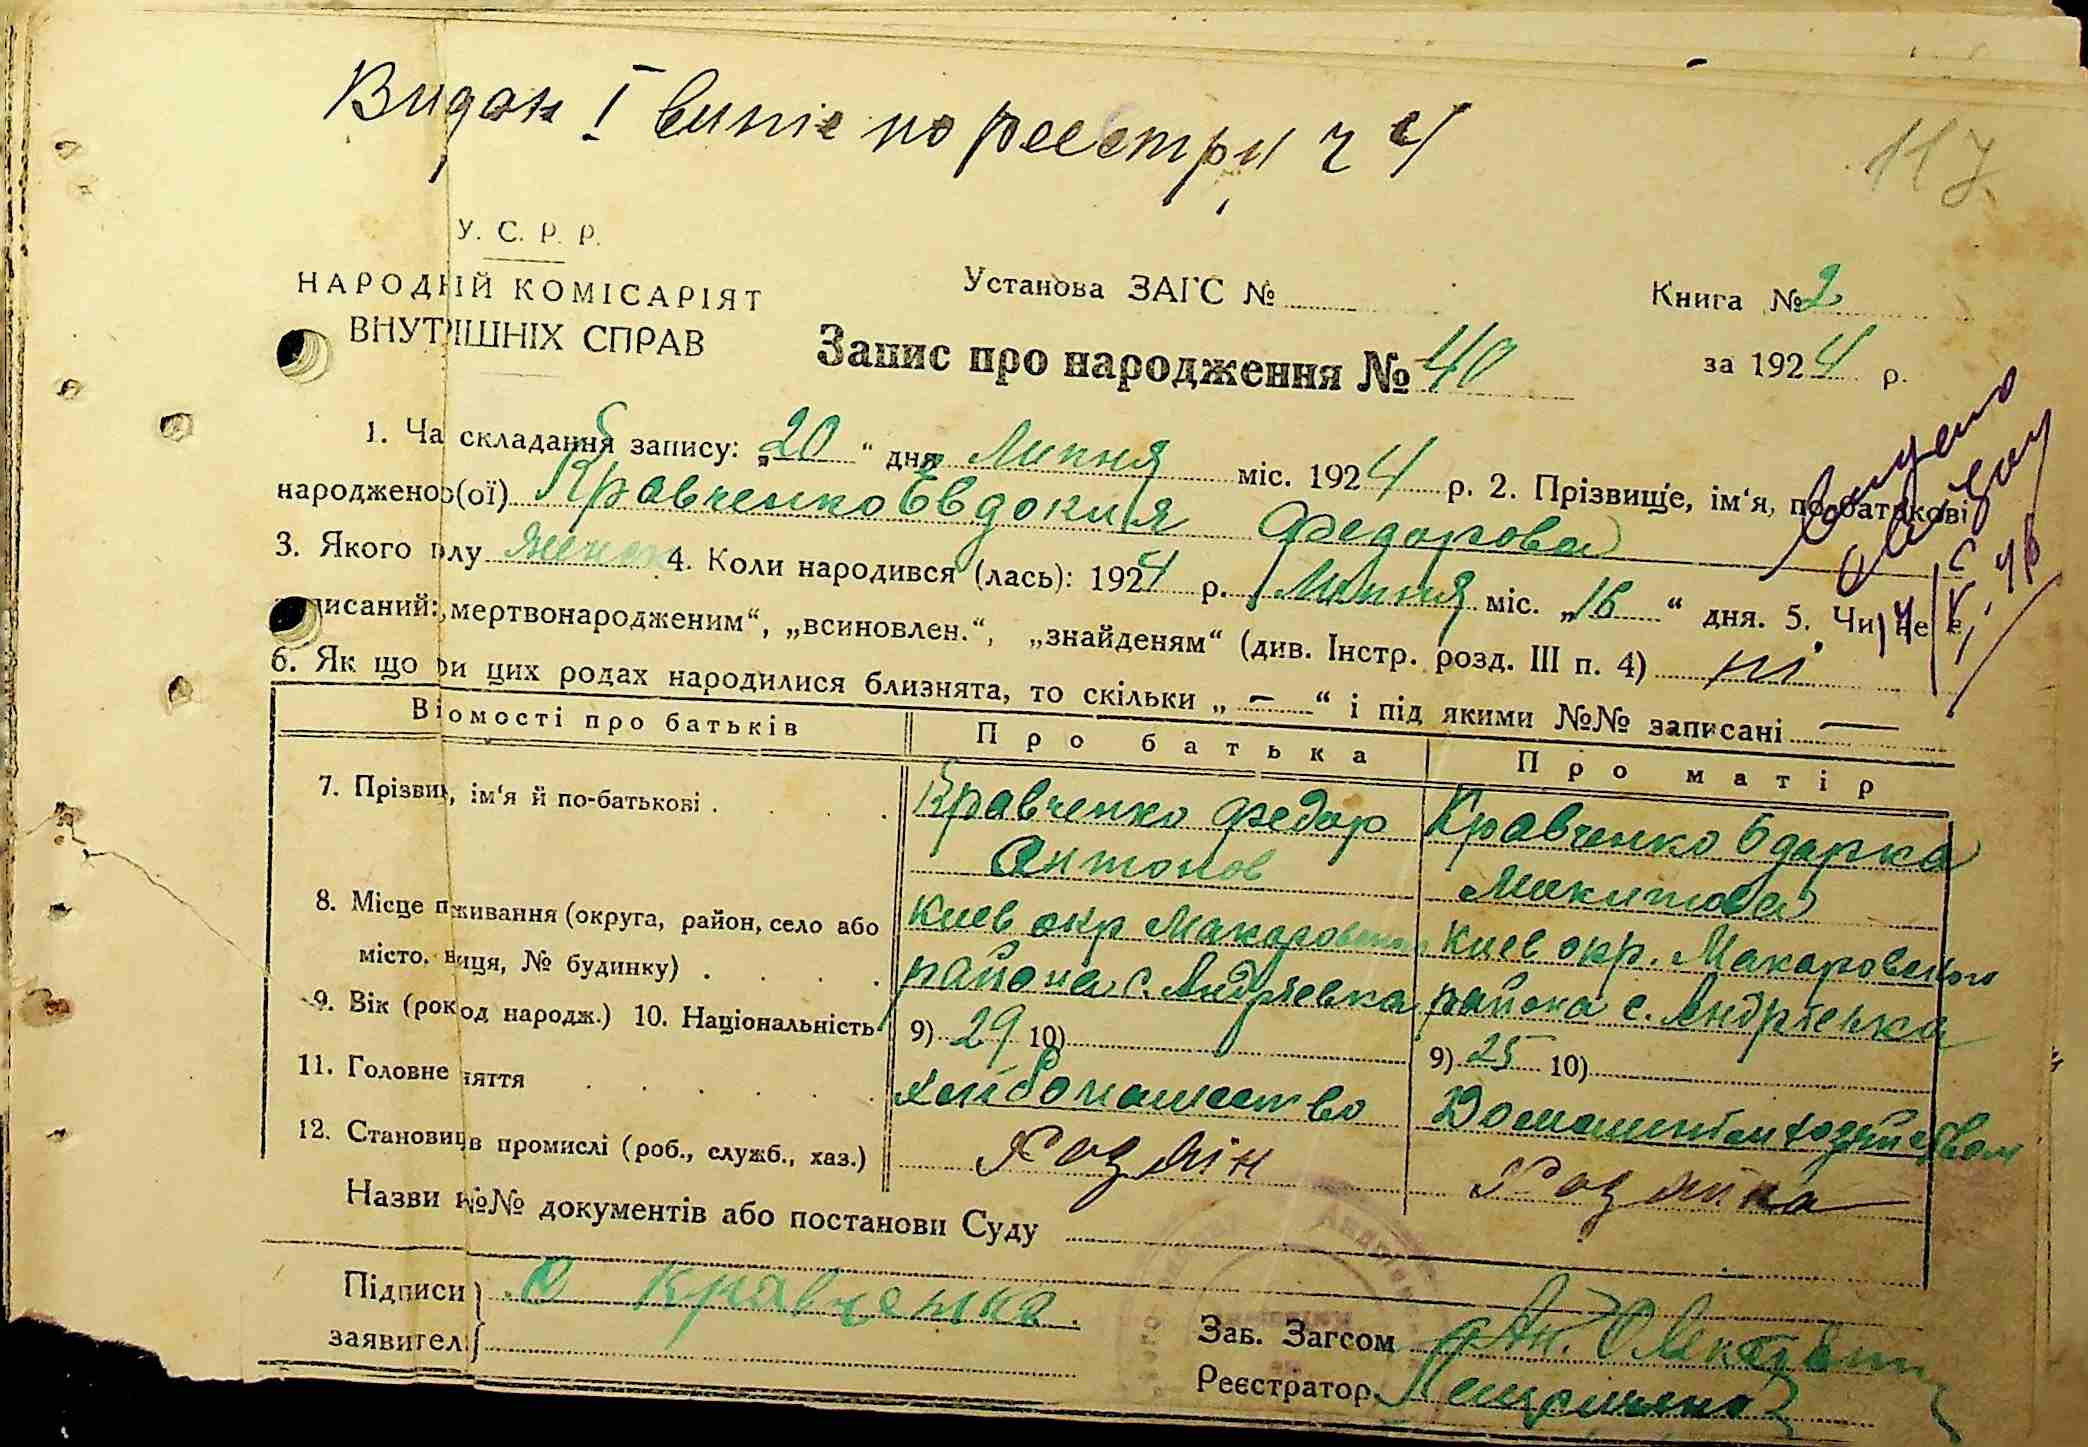 Видан I випис по реєстру ч 4
117
У. С. Р. Р.
НАРОДНІЙ КОМІСАРІЯТ
ВНУТРІШНІХ СПРАВ
Установа ЗАГС №
Книга № 2
Запис про народження № 40
за 1924 р.
1. Ча складання запису: „20“ дня Липня міс. 1924 р. 2. Прізвище, ім‘я, по-батькові
народженого(ої) Кравченко Евдокия Федорова
3. Якого полу женск 4. Коли народився (лась): 1924 р. Липня міс. „16“ дня. 5. Чи не є
записаний: „мертвонародженим“, „всиновлен.“, „знайденям“ (див. Інстр. розд. III п. 4) ні
6. Як що при цих родах народилися близнята, то скільки „—“ і під якими №№ записані —
Відомості про батьків
Про батька
Про матір
7. Прізвищ, ім‘я й по-батькові
Кравченко Федор
Антонов
Кравченко Одарка
Микитова
8. Місце проживання (округа, район, село або
місто, вулиця, № будинку)
Киев окр Макаровского
района с. Андреевка
Киев окр. Макаровского
района с. Андріевка
9. Вік (рок од народж.) 10. Національність
9) 29 10)
9) 25 10)
11. Головне заняття
хлибопашество
Домашнім хозяйством
12. Становище в промислі (роб., служб., хаз.)
Хозяін
Хозяйка
Назви й №№ документів або постанови Суду
Підписи
заявител
О Кравченко
Зав. Загсом
Реєстратор